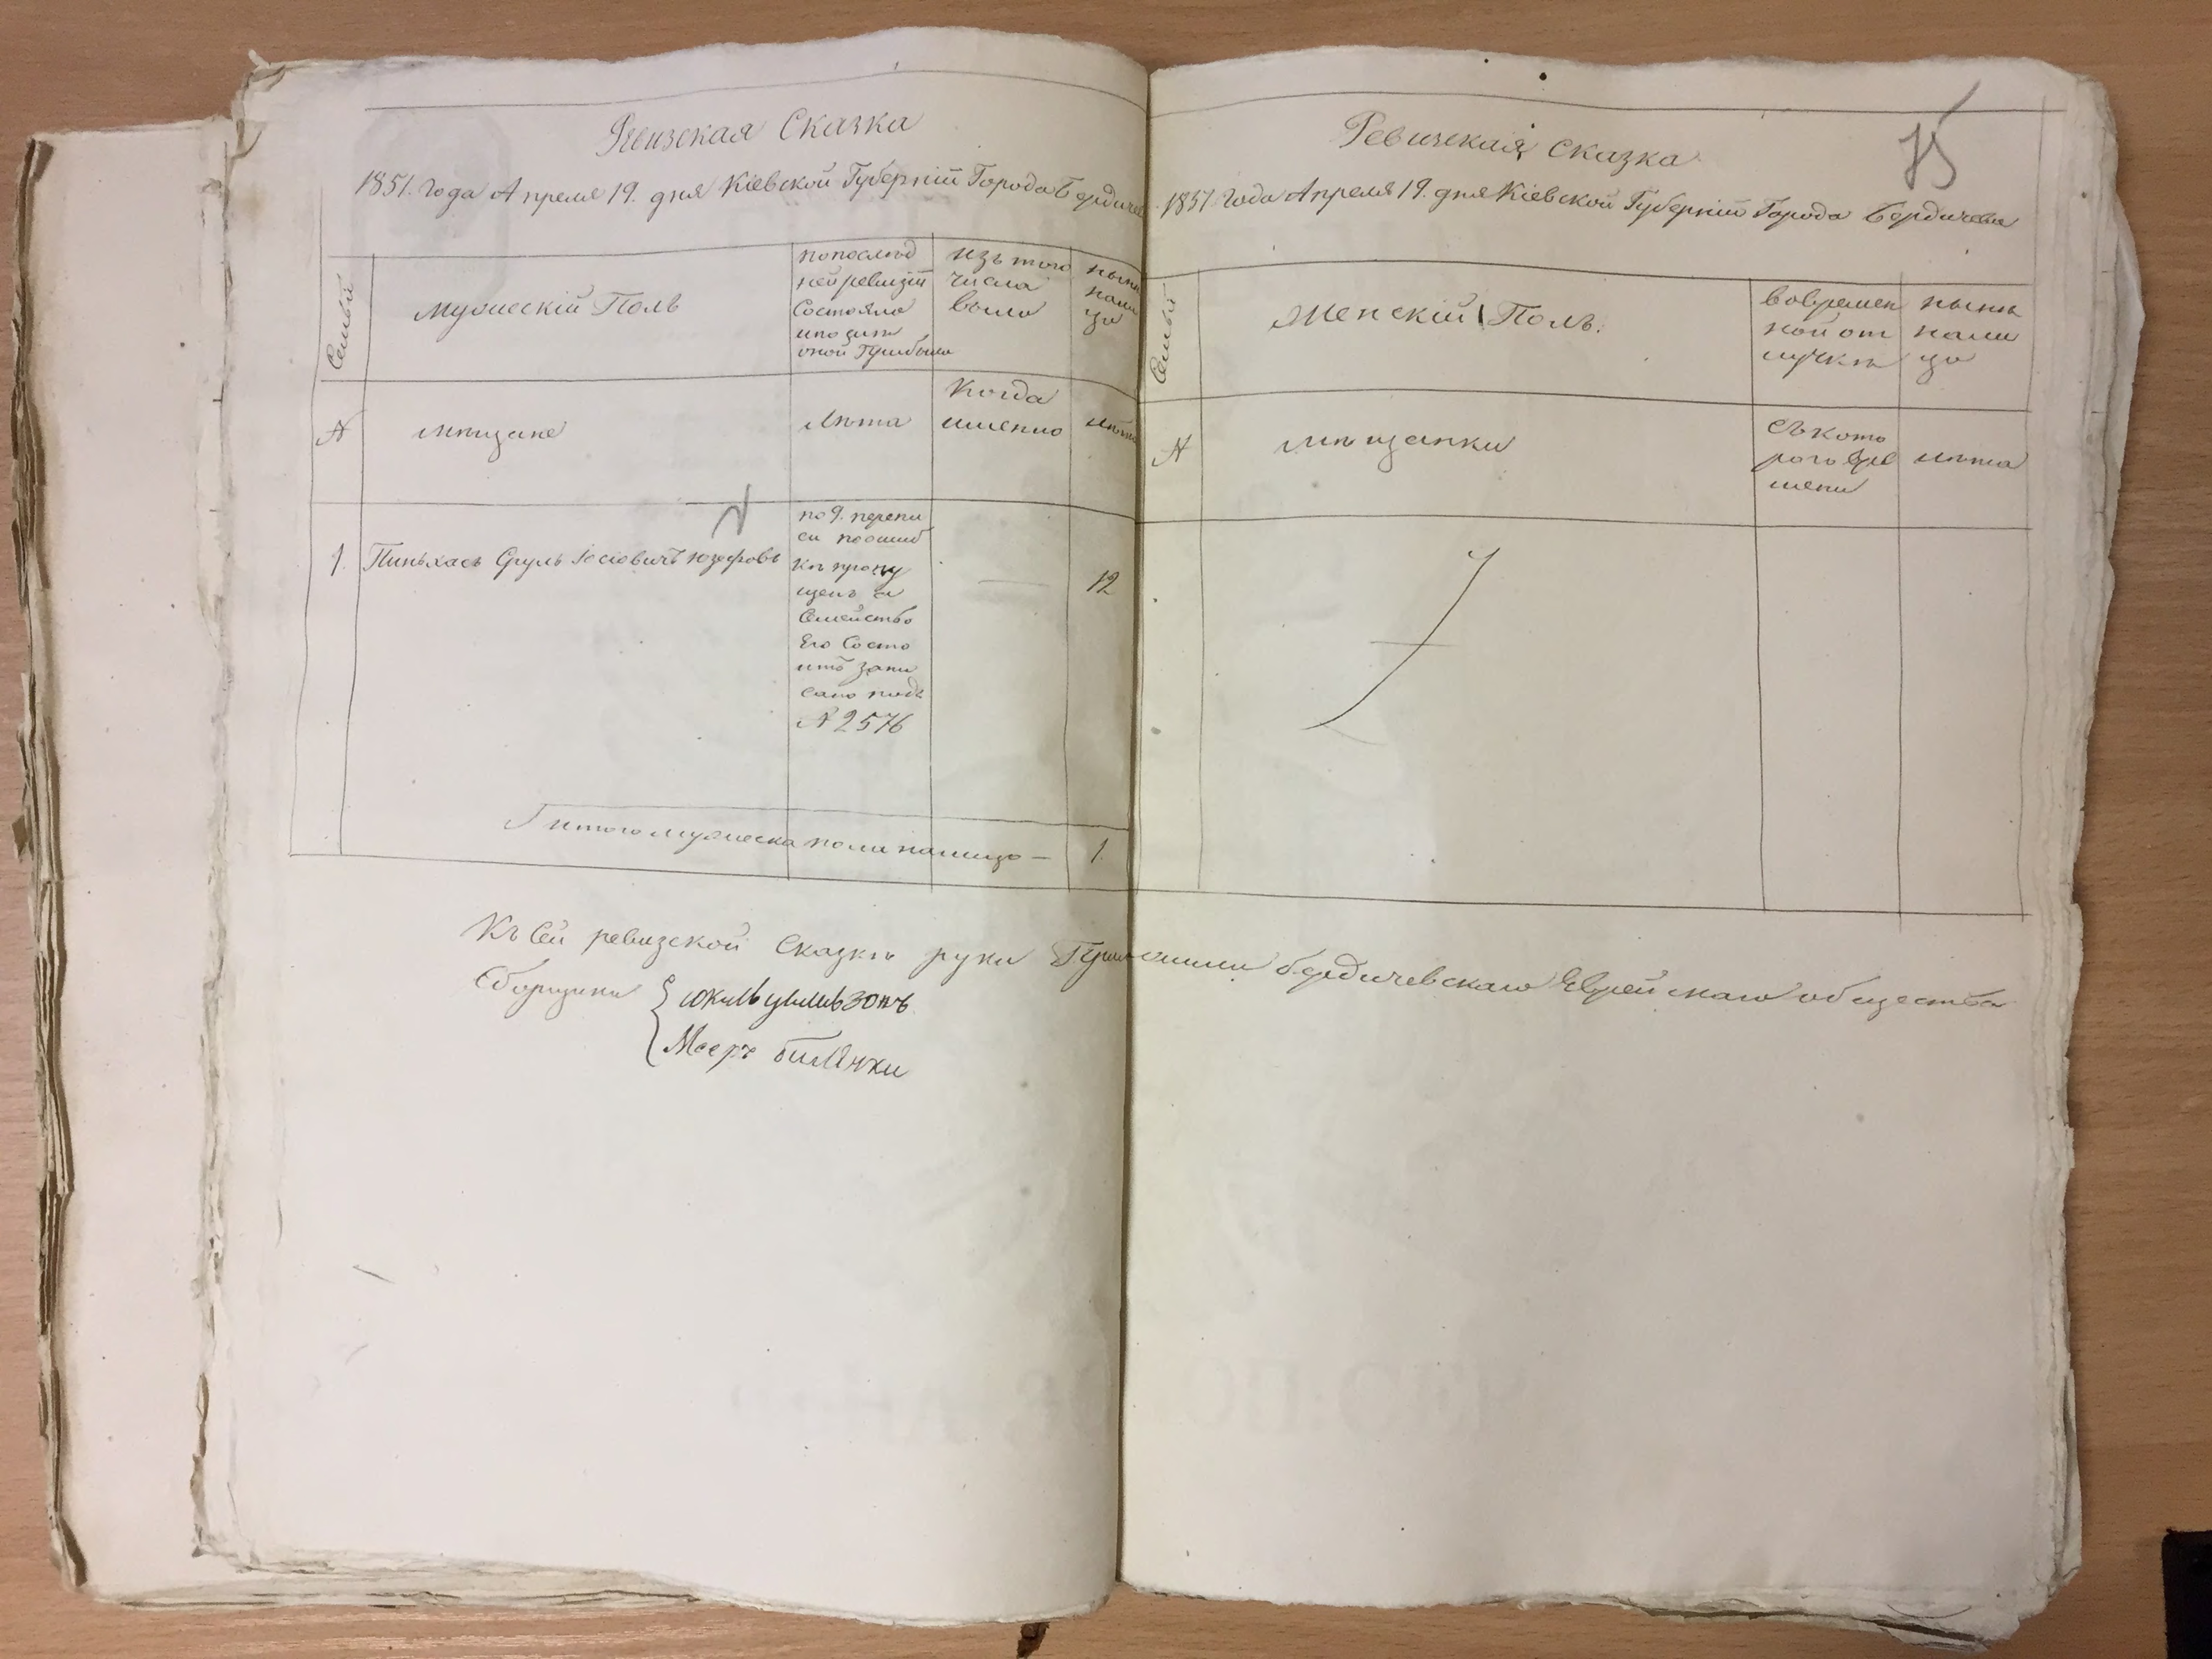 Ревизская Сказка
1851. года Апреля 19. дня Кіевской Губерніи Города Бердичева
Семьи
мужескій Полъ
попослѣд
ней ревизіи
Состояло
ипослѣ
оной Прибыло
изъ того
числа
выло
нынѣ
нали
цо
№
мѣщане
лѣта
Когда
именно
лѣта
1.
Пинькасъ Сруль Іосіовичъ Юзефовъ
по 9. перепи
си поошиб
кѣ пропу
щенъ а
Семейство
Его Состо
итъ запи
сано подъ
№ 2576
12
итого мужеска пола налицо —
1.
Ревизская Сказка
75
1851. года Апреля 19. дня Кіевской Губерніи Города Бердичева
Семьи
Женскій Полъ.
вовремен
ной от
лучкѣ
нынѣ
нали
цо
№
мѣщанки
съ кото
рого вре
мени
лѣта
Къ Сей ревизской Сказкѣ руки Приложили бердичевскаго Еврейскаго общества
Сборщики
Мееръ